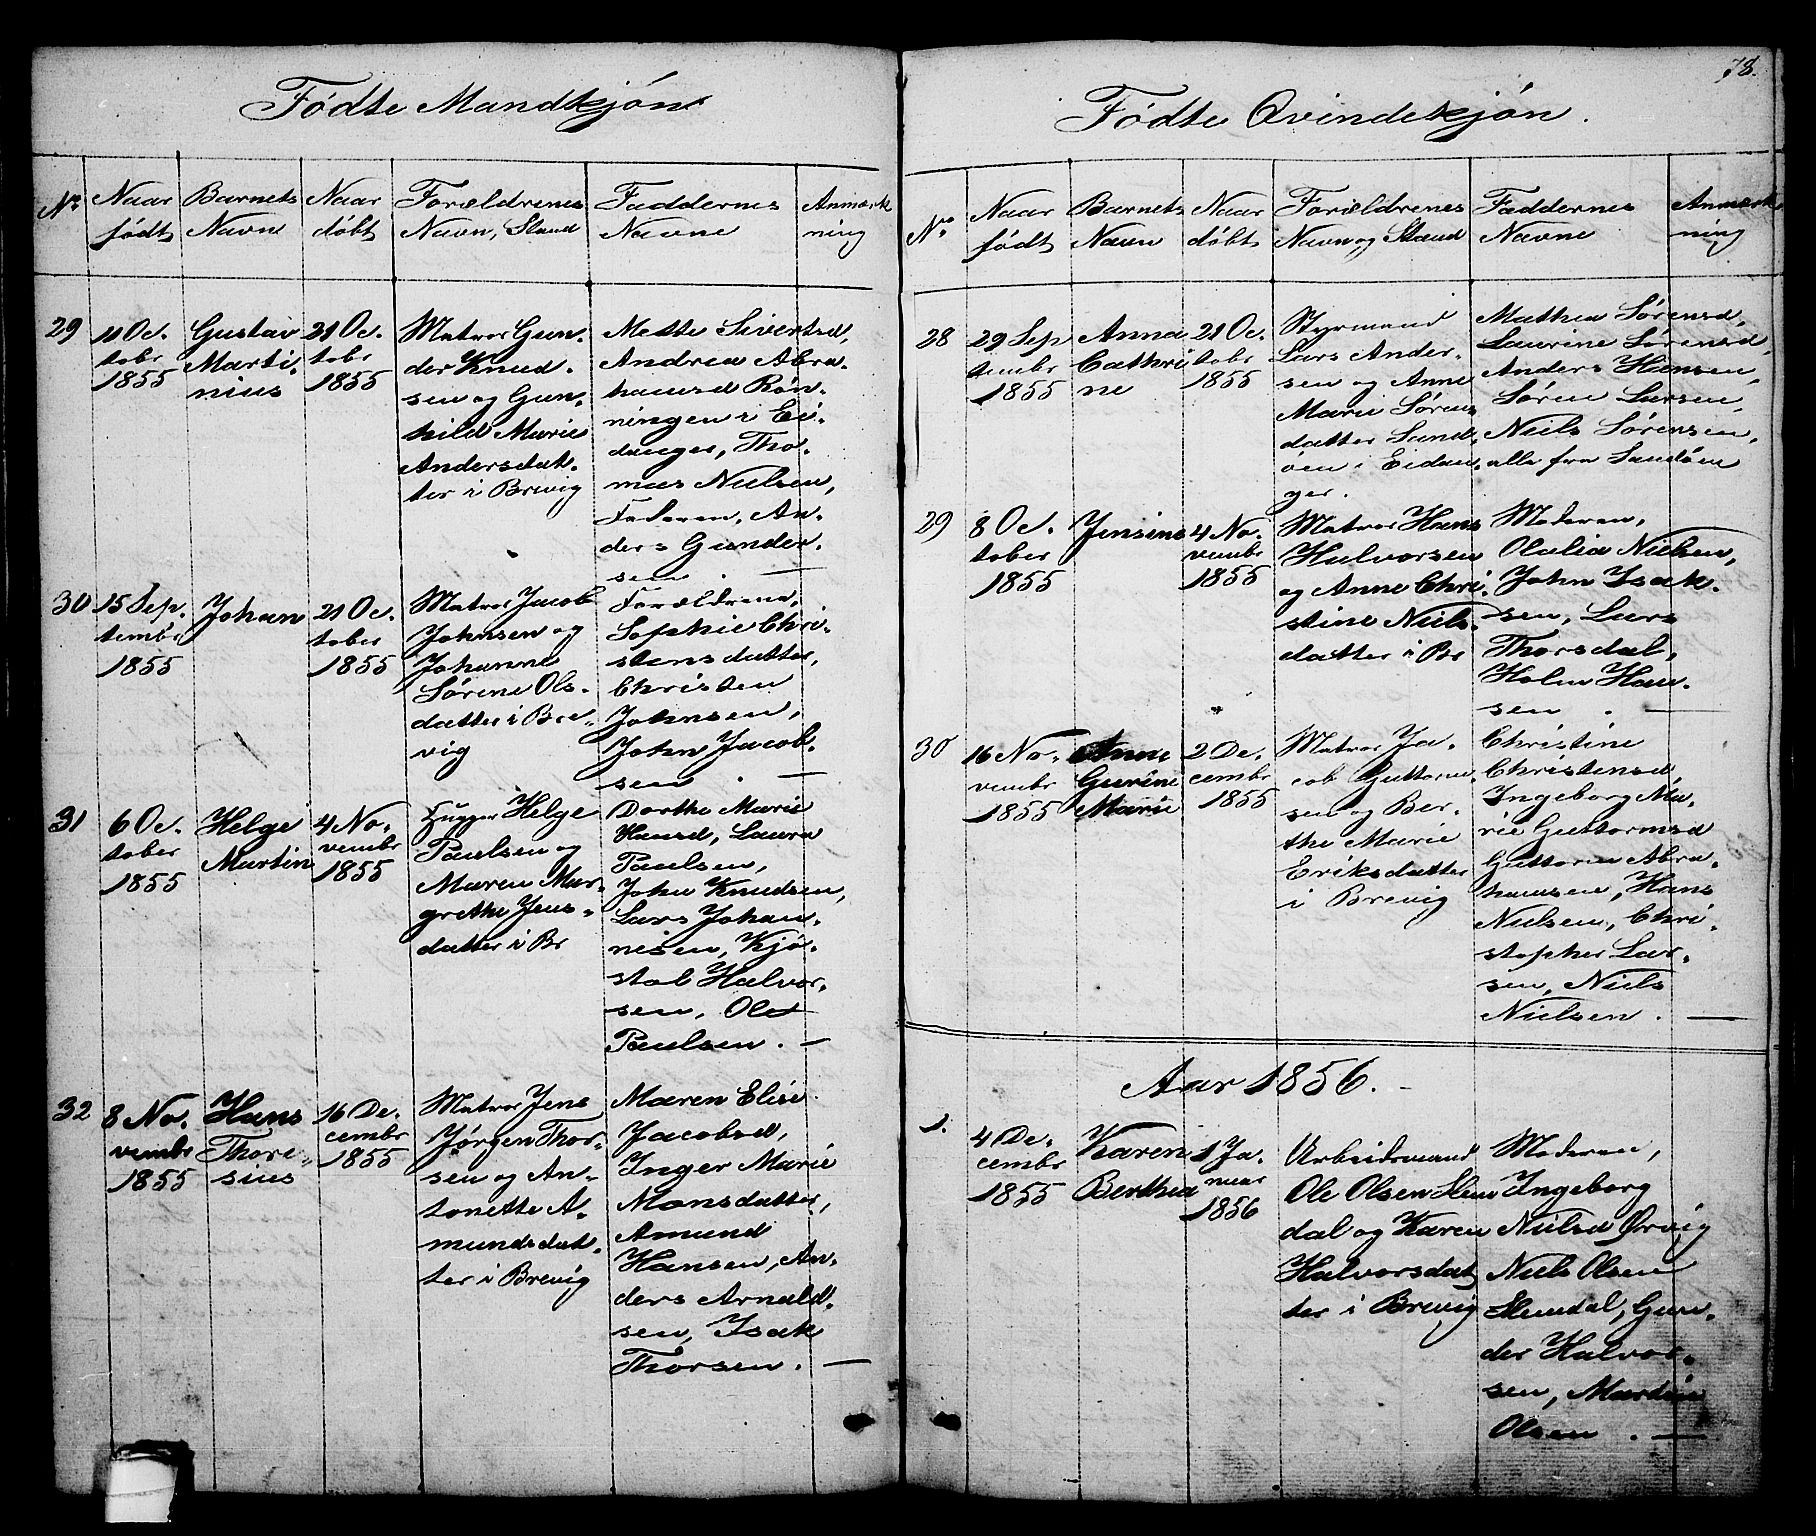 Fødte Mandkjøn
No
Naar
født
Barnets
Navn
Naar
døbt
Forældrenes
Navn, Stand
Faddernes
Navne
Anmærk
ning
29
11 Oc.
tobr
1855
Gustav
Marti-
nius
21 Oc.
tobr
1855
Matros Gun-
der Knud-
sen og Gun-
hild Marie
Andersdat-
ter i Brevig
Mette Sivertsd,
Andrea Abra
hamsd Røn-
ningen i Ei-
danger, Tho-
mas Nielsen,
Faderen, An-
ders Gunder-
sen. —
30
15 Sep.
tembr
1855
Johan
21 Oc.
tober
1855
Matros Jacob
Johnsen og
Johanne
Sørene Ols-
datter i Bre-
vig
Forældrene,
Sophie Chri-
stensdatter,
Christen
Johnsen,
John Jacob-
sen. —
31
6 Oc.
tober
1855
Helge
Martin
4 No.
vembr
1855
Hugger Helge
Paulsen og
Maren Mar-
grethe Jens-
datter i Br
Dorthe Marie
Hansd, Laura
Paulsen,
John Knudsen,
Lars Johan-
nisen, Kjø-
stol Halvor-
sen, Ole
Paulsen. —
32
8 No.
vembr
1855
Hans
Thore-
sius
16 De.
cembr
1855
Matros Jens
Jørgen Thor-
sen og An-
tonette A-
mundsdat-
ter i Brevig
Maren Elise
Jacobsd,
Inger Marie
Monsdatter,
Amund
Hansen, An-
ders Arnald-
sen, Isak
Thorsen. —
78.
Fødte Qvindekjøn.
No
Naar
født
Barnets
Navn
Naar
døbt
Forældrenes
Navn og Stand
Faddernes
Navne
Anmærk
ning
28
29 Sep
tembr
1855
Anna
Cathri
ne
21 Oc.
tobr
1855
Styrmand
Lars Ander-
sen og Anne
Marie Sørens
datter Sand-
øen i Eidan-
ger.
Mathea Sørensd,
Laurine Sørensd,
Anders Hansen,
Søren Larsen,
Niels Sørensen,
alle fra Sandøen
29
8 Oc.
tober
1855
Jensine
4 No.
vembr
1855
Matros Hans
Halvorsen
og Anne Chri-
stine Niels-
datter i Br
Moderen,
Olalia Nielsen,
John Isak-
sen, Lars
Thorsdal,
Holm Han-
sen. —
30
16 No.
vembr
1855
Anne
Gurine
Marie
2 De.
cembr
1855
Matros Ja-
cob Guttorm-
sen og Ber-
the Marie
Eriksdatter
i Brevig
Christine
Christensd,
Ingeborg Ma-
rie Guttormsd
Guttorm Abra-
hamsen, Hans
Nielsen, Chri-
stopher Lar-
sen, Niels
Nielsen. —
Aar 1856. -
1.
4 De.
cembr
1855
Karen
Berthea
1 Ja-
nuar
1856
Arbeidsmand
Ole Olsen Slem
dal og Karen
Halvorsdat
ter i Brevig
Moderen,
Ingeborg
Nielsd Ørvig
Niels Olsen
Slemdal, Gun-
der Halvor-
sen, Martin
Olsen. —